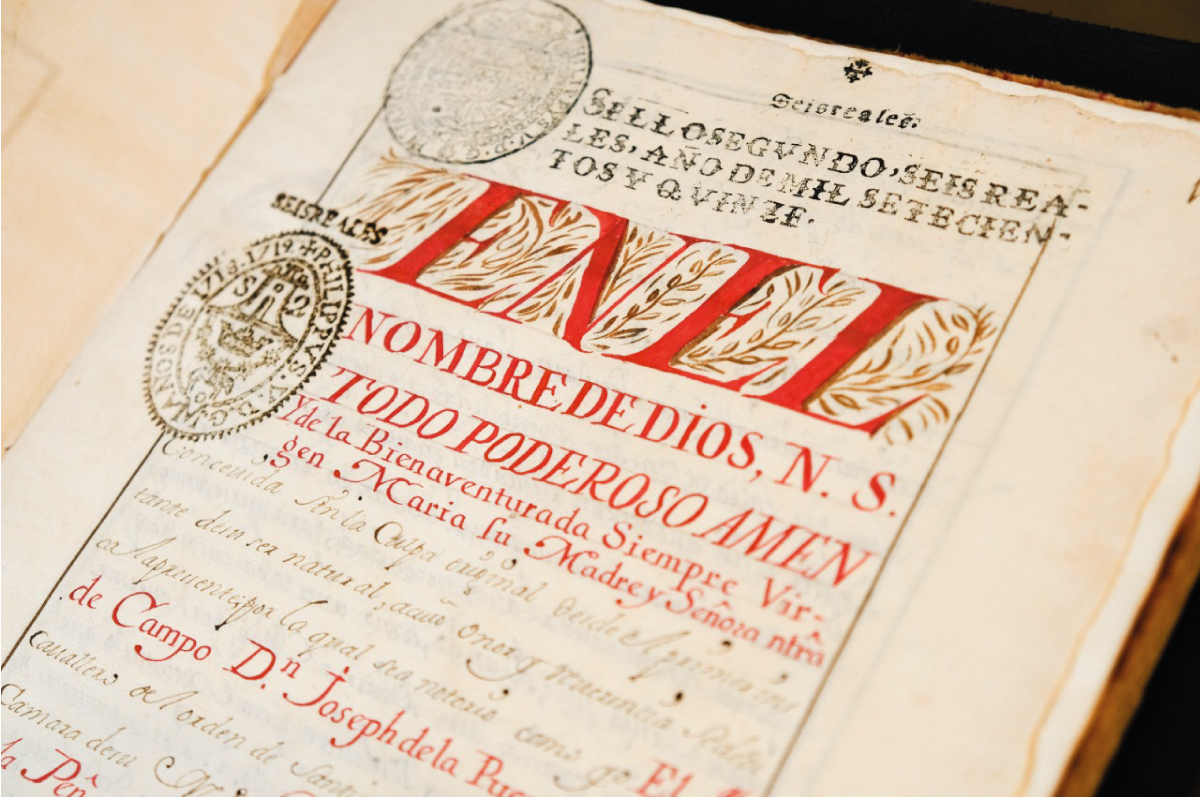 Seisreales.
SELLO SEGVNDO, SEIS REA-
LES, AÑO DE MIL SETECIEN-
TOS Y QVINZE.
SEISREALES
1718. 1719 ✠ PHILIPPVS. V. D. G. HISPANOS DE
S 2
EN EL
NOMBRE DE DiOS, N. S.
TODO PODEROSO AMEN
Y de la Bienaventurada Siempre Vir-
gen Maria su Madre y Señora ntrâ
Conceuida sin la Culpa original desde el primer ins
tante de su ser natural,
por la qual sea notorio como Yo El
de Campo D.n Joseph de la Pue
Cauallero del orden de Santi
Camara de su
la Peñ